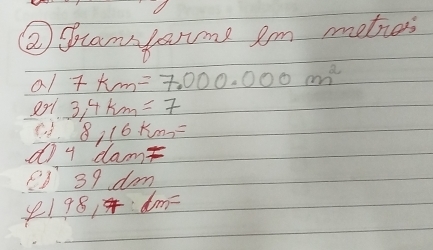 ② Transforme em metros
a) 7 Km = 7.000.000 m²
b) 3,4 Km = 7
c) 8,16 Km =
d) 4 dam =
e) 39 dm
f) 98,4 dm =